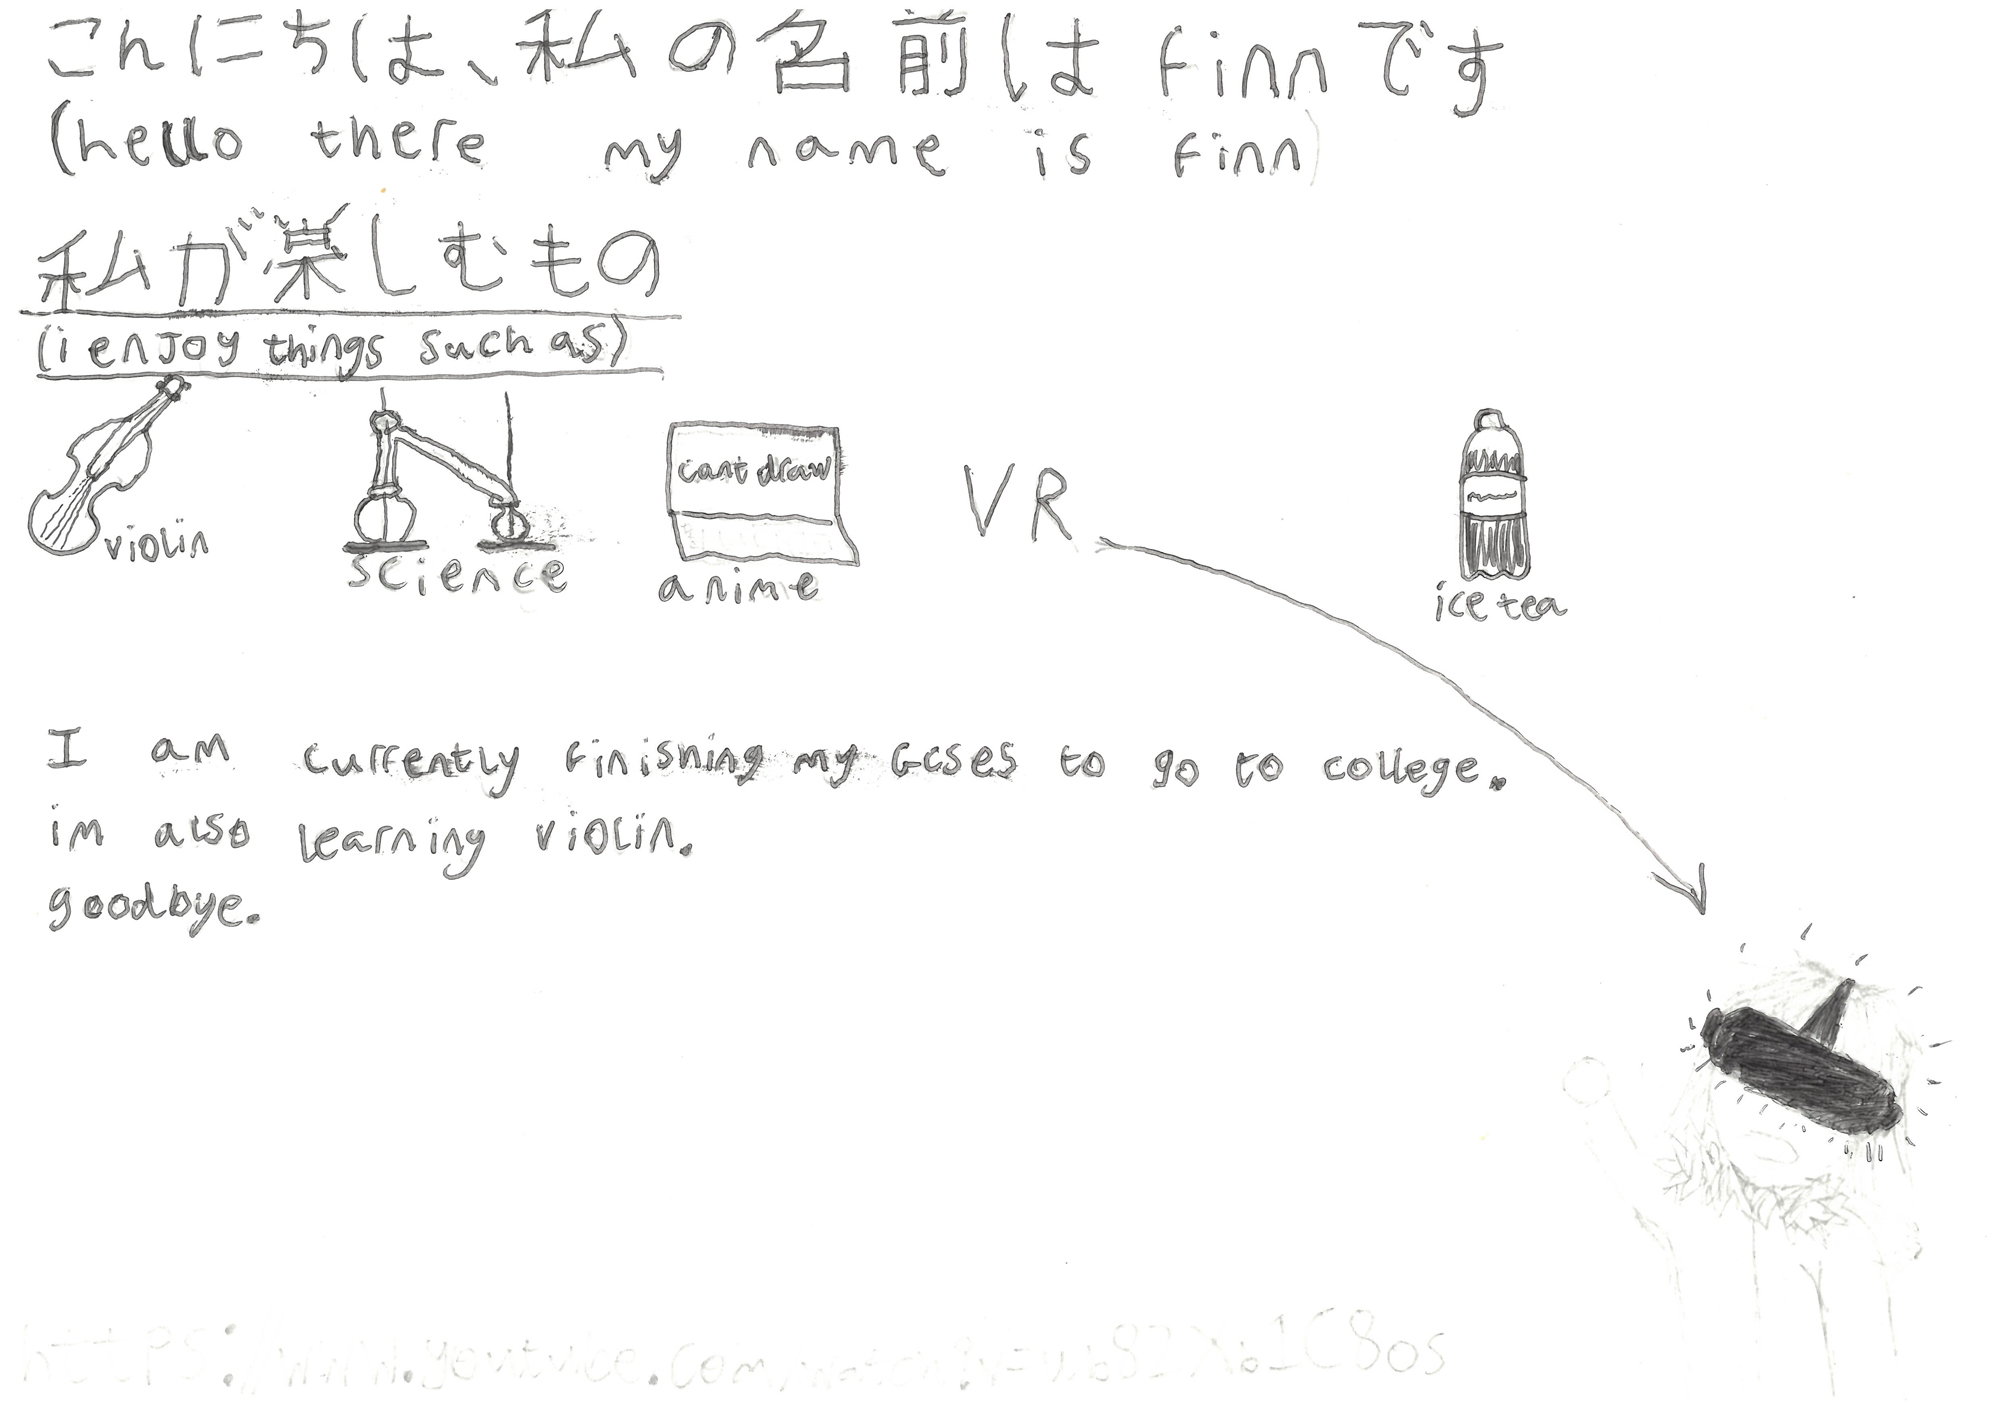 こんにちは、私の名前は Finn です
(hello there my name is Finn)
私が楽しむもの
(i enjoy things such as)
violin
science
cant draw
anime
VR
ice tea
I am currently finishing my GCSEs to go to college.
im also learning violin.
goodbye.